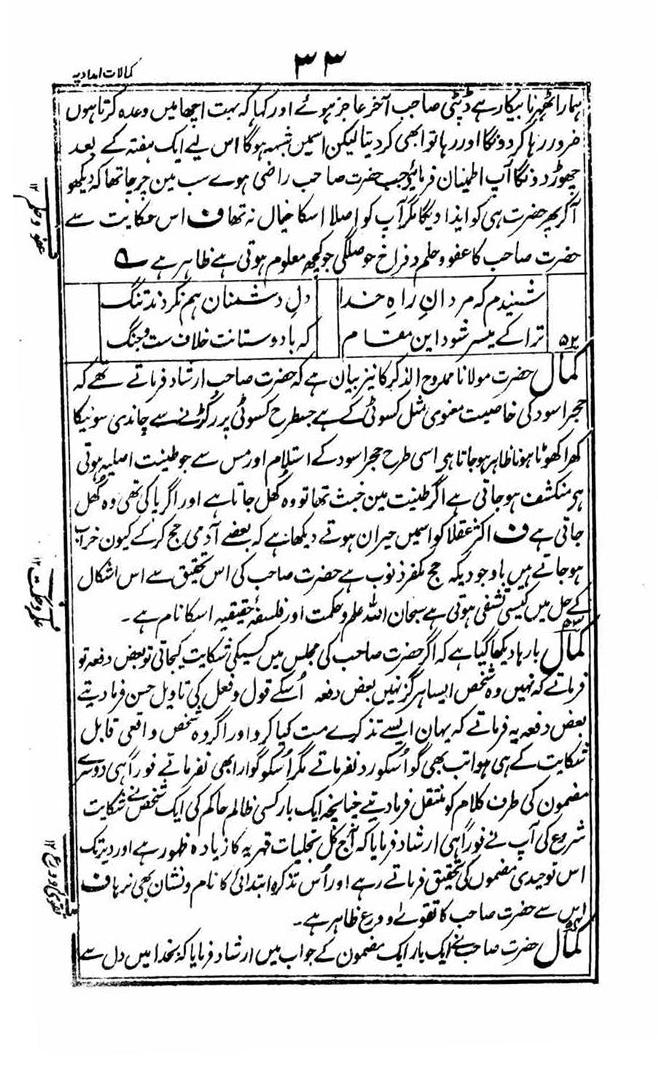 کمالات امدادیہ
۳۳
ہمارا ٹھیرنا بیکار ہے ڈپٹی صاحب آخر عاجز ہوئے اور کہا کہ بہت اچھا میں وعدہ کرتا ہوں
ضرور رہا کر دونگا اور رہا تو ابھی کر دیتا لیکن اسمیں شبہہ ہوگا اس لیے ایک ہفتہ کے بعد
چھوڑ دونگا آپ اطمینان فرمائیے جب حضرت صاحب راضی ہوے سب مین چرچا تھا کہ دیکھو
آکر پھر حضرت ہی کو ایذا دیگا مگر آپ کو اصلا اسکا خیال نہ تھا ف اس حکایت سے
حضرت صاحب کا عفو و حلم و فراخ حوصلگی جو کچھ معلوم ہوتی ہے ظاہر ہے
عفو و حلم ۱۲
شنیدم کہ مردانِ راہِ خدا
دلِ دشمنان ہم نکردند تنگ
ترا کے میسر شود این مقام
کہ با دوستانت خلاف ست و جنگ
۵۲
کمال حضرت مولانا ممدوح الذکر کا نیز بیان ہے کہ حضرت صاحب ارشاد فرماتے تھے کہ
حجر اسود کی خاصیت معنوی مثل کسوٹی کے ہے جسطرح کسوٹی پر رگڑنے سے چاندی سونیکا
کھرا کھوٹا ہونا ظاہر ہو جاتا ہی اسی طرح حجر اسود کے استلام اور مس سے جو طینت اصلیہ ہوتی
ہی منکشف ہو جاتی ہے اگر طینت مین خبث تھا تو وہ کھل جاتا ہے اور اگر پاکی تھی وہ کھل
جاتی ہے ف اکثر عقلا کو اسمیں حیران ہوتے دیکھا ہے کہ بعضے آدمی حج کر کے کیون خراب
ہو جاتے ہیں باوجودیکہ حج مکفر ذنوب ہے حضرت صاحب کی اس تحقیق سے اس اشکال
کے حل میں کیسی تشفی ہوتی ہے سبحان اللہ علم و حکمت اور فلسفۂ حقیقیہ اسکا نام ہے ۔
علم و حکمت ۱۲
۵۳
کمال بارہا دیکھا گیا ہے کہ اگر حضرت صاحب کی مجلس میں کسیکی شکایت کیجاتی تو بعض دفعہ تو
فرماتے کہ نہیں وہ شخص ایسا ہرگز نہیں بعض دفعہ اُسکے قول و فعل کی تاویل حسن فرما دیتے
بعض دفعہ یہ فرماتے کہ یہان ایسے تذکرے مت کیا کرو اور اگر وہ شخص واقعی قابل
شکایت کے ہی ہوا تب بھی گو اُسکو رد نفرماتے مگر اُسکو گوارا بھی نفرماتے فوراً ہی دوسرے
مضمون کی طرف کلام کو منتقل فرما دیتے چنانچہ ایک بار کسی ظالم حاکم کی ایک شخص نے شکایت
شروع کی آپ نے فوراً ہی ارشاد فرمایا کہ آج کل تجلیات قہریہ کا زیادہ ظہور ہے اور دیر تک
اس توحیدی مضمون کی تحقیق فرماتے رہے اور اُس تذکرہ ابتدائی کا نام و نشان بھی نرہا ف
اس سے حضرت صاحب کا تقوےٰ و ورع ظاہر ہے ۔
تقوی و ورع ۱۲
۵۴
کمال حضرت صاحب نے ایک بار ایک مضمون کے جواب میں ارشاد فرمایا کہ بخدا میں دل سے